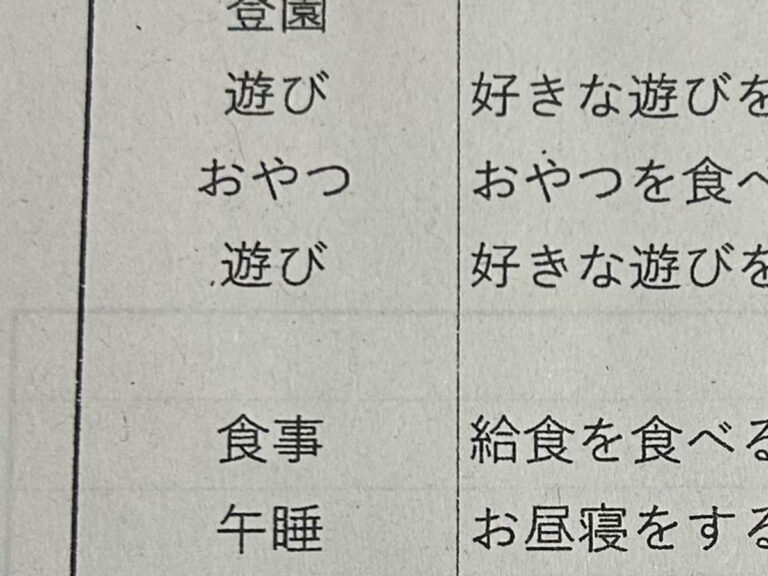 登園
遊び 好きな遊びを
おやつ おやつを食べ
遊び 好きな遊びを
食事 給食を食べる
午睡 お昼寝をする